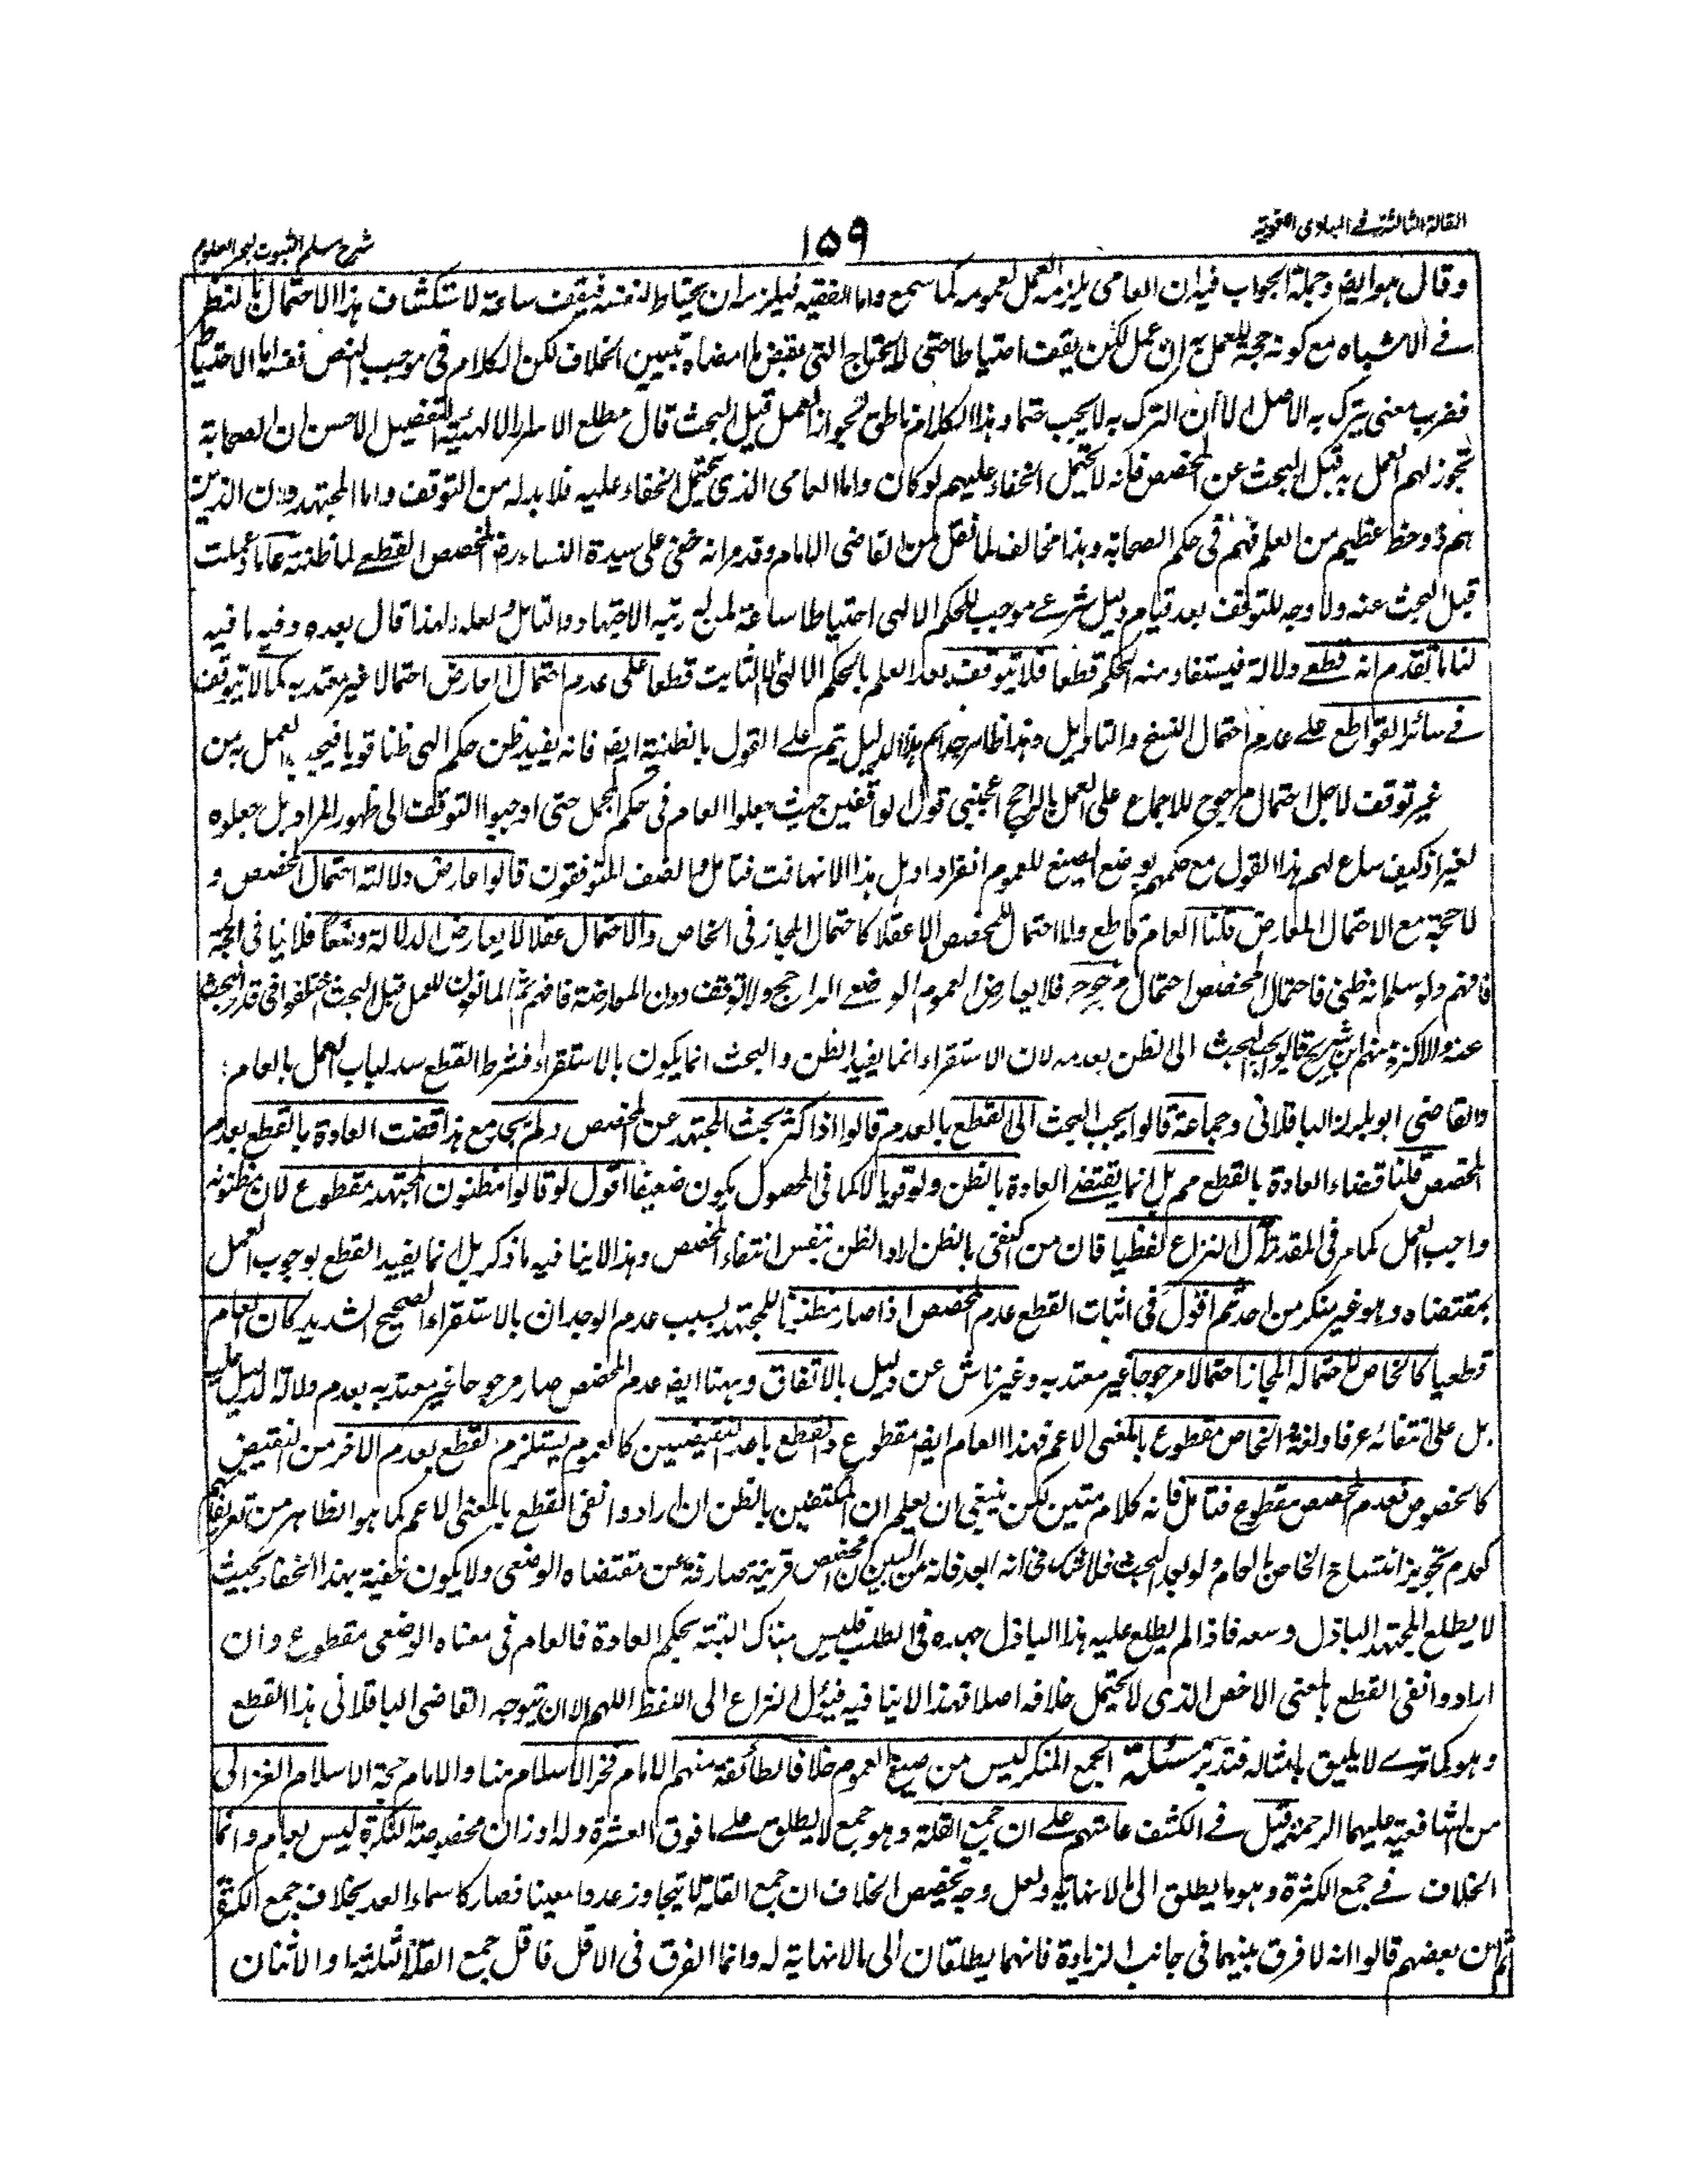 المقالة الثالثة في المبادي اللغوية
١٥٩
شرح مسلم الثبوت لبحر العلوم
وقال هو ايضا وجملة الجواب فيه ان العامي يلزمه العمل بعمومه كما سمع واما الفقيه فيلزمه ان يحتاط لنفسه فيقف ساعة لاستكشاف هذا الاحتمال بالنظر
في الاشباه مع كونه حجة للعمل به ان عمل لكن يقف احتياطا حتى لا يحتاج الى نقض ما امضاه بتبيين الخلاف لكن الكلام في موجب النص نفسه اما الاحتياط
فضرب معنى يترك به الاصل الا ان الترك به لا يجب حتما وهذا الكلام ناطق لجواز العمل قبل البحث قال مطلع الاسرار الالهية التفصيل الاحسن ان الصحابة
تجوز لهم العمل به قبل البحث عن المخصص فانه لا يحتمل الخفاء عليهم لو كان واما العامي الذي يحتمل الخفاء عليه فلا بد له من التوقف واما المجتهدون الذين
هم ذو حظ عظيم من العلم فهم في حكم الصحابة وهذا مخالف لما نقل من القاضي الامام وقد مر انه خفي على سيدة النساء رض المخصص القطعي لما ظنته عاما وعملت
قبل البحث عنه ولا وجه للتوقف بعد قيام دليل شرعي موجب للحكم الالهي احتياطا ساعة لمن بلغ رتبة الاجتهاد والتامل ولعله لهذا قال بعده وفيه ما فيه
لنا ما تقدم انه قطعي دلالة فيستفاد منه الحكم قطعا فلا يتوقف بعد العلم بالحكم الالهي الثابت قطعا على عدم احتمال المعارض احتمالا غير معتد به كما لا يتوقف
في سائر القواطع على عدم احتمال النسخ والتاويل وهذا ظاهر جدا ثم هذا الدليل يتم على القول بالظنية ايضا فانه يفيد ظن حكم الهي ظنا قويا فيجب العمل به من
غير توقف لاجل احتمال مرجوح للاجماع على العمل بالراجح اعجبني قول الواقفين حيث جعلوا العام في حكم المجمل حتى اوجبوا التوقف الى ظهور المراد بل جعلوه
لغيرا كيف ساغ لهم هذا القول مع حكمهم بوضع الصيغ للعموم انفرادا وبل هذا الا تهافت فتامل وانصف المتوقفون قالوا عارض دلالته احتمال المخصص و
لا حجة مع الاحتمال المعارض قلنا العام قاطع واما احتمال المخصص الا عقلا كاحتمال المجاز في الخاص والاحتمال عقلا لا يعارض الدلالة وضعا فلا ينافي الحجة
فافهم ولو سلم انه ظني فاحتمال المخصص احتمال مرجوح فلا يعارض العموم الوضعي الراجح ولا توقف دون المعارضة فافهم ثم المانعون للعمل قبل البحث اختلفوا في قدر البحث
عنه والاكثر منهم ابن شريح قالوا يجب البحث الى الظن بعدمه لان الاستقراء انما يفيد الظن والبحث انما يكون بالاستقراء فشرط القطع سد لباب العمل بالعام
والقاضي ابو بكر الباقلاني وجماعة قالوا يجب البحث الى القطع بالعدم قالوا اذا كثر بحث المجتهد عن المخصص ولم يجد مع هذا قضت العادة بالقطع بعدم
المخصص قلنا قضاء العادة بالقطع مم بل انما يقتضي العادة بالظن ولو قويا لا كما في المحصول يكون ضعيفا اقول لو قالوا مظنون المجتهد مقطوع لان مظنونه
واجب العمل كما مر في المقدمة آل النزاع لفظيا فان من اكتفى بالظن اراد الظن بنفس انتفاء المخصص وهذا لا ينافيه ما ذكر بل انما يفيد القطع بوجوب العمل
بمقتضاه وهو غير منكر من احد ثم اقول في اثبات القطع عدم المخصص اذا صار مظنونا للمجتهد بسبب عدم الوجدان بالاستقراء الصحيح الشديد كان العام
قطعيا كالخاص لاحتماله المجاز احتمالا مرجوحا غير معتد به وغير ناش عن دليل بالاتفاق وههنا ايضا عدم المخصص صار مرجوحا غير معتد به بعدم دلالة الدليل عليه
بل على انتفائه عرفا ولغة الخاص مقطوع بالمعنى الاعم فهذا العام ايضا مقطوع والقطع باحد النقيضين كالعموم يستلزم القطع بعدم الآخر من النقيض
كالخصوص فعدم المخصص مقطوع فتامل فانه كلام متين لكن ينبغي ان يعلم ان المكتفين بالظن ان ارادوا نفي القطع بالمعنى الاعم كما هو الظاهر من تعريفاتهم
كعدم تجويز انتساخ الخاص بالعام ولو بعد البحث فلا شك في انه ابعد فانه من البين ان المخصص قرينة صارفة عن مقتضاه الوضعي ولا يكون خفية بهذا الخفاء بحيث
لا يطلع المجتهد الباذل وسعه فاذا لم يطلع عليه هذا الباذل جهده في الطلب فليس هناك البتة بحكم العادة فالعام في معناه الوضعي مقطوع وان
ارادوا نفي القطع بالمعنى الاخص الذي لا يحتمل خلافه اصلا فهذا لا ينافيه فيؤل النزاع الى اللفظ اللهم الا ان يتوجه القاضي الباقلاني هذا القطع
وهو كما ترى لا يليق بامثاله فتدبر مسئلة الجمع المنكر ليس من صيغ العموم خلافا لطائفة منهم الامام فخر الاسلام منا والامام حجة الاسلام الغزالي
من الشافعية عليهما الرحمة قيل في الكشف عامتهم على ان جمع القلة وهو جمع لا يطلق على ما فوق العشرة وله اوزان مخصوصة النكرة ليس بعام وانما
الخلاف في جمع الكثرة وهو ما يطلق الى ما لا نهاية له ولعل وجه تخصيص الخلاف ان جمع القلة لا يتجاوز عددا معينا فصار كاسماء العدد بخلاف جمع الكثرة
ثم ان بعضهم قالوا انه لا فرق بينهما في جانب الزيادة فانهما يطلقان الى ما لا نهاية له وانما الفرق في الاقل فاقل جمع القلة الثلثة او الاثنان